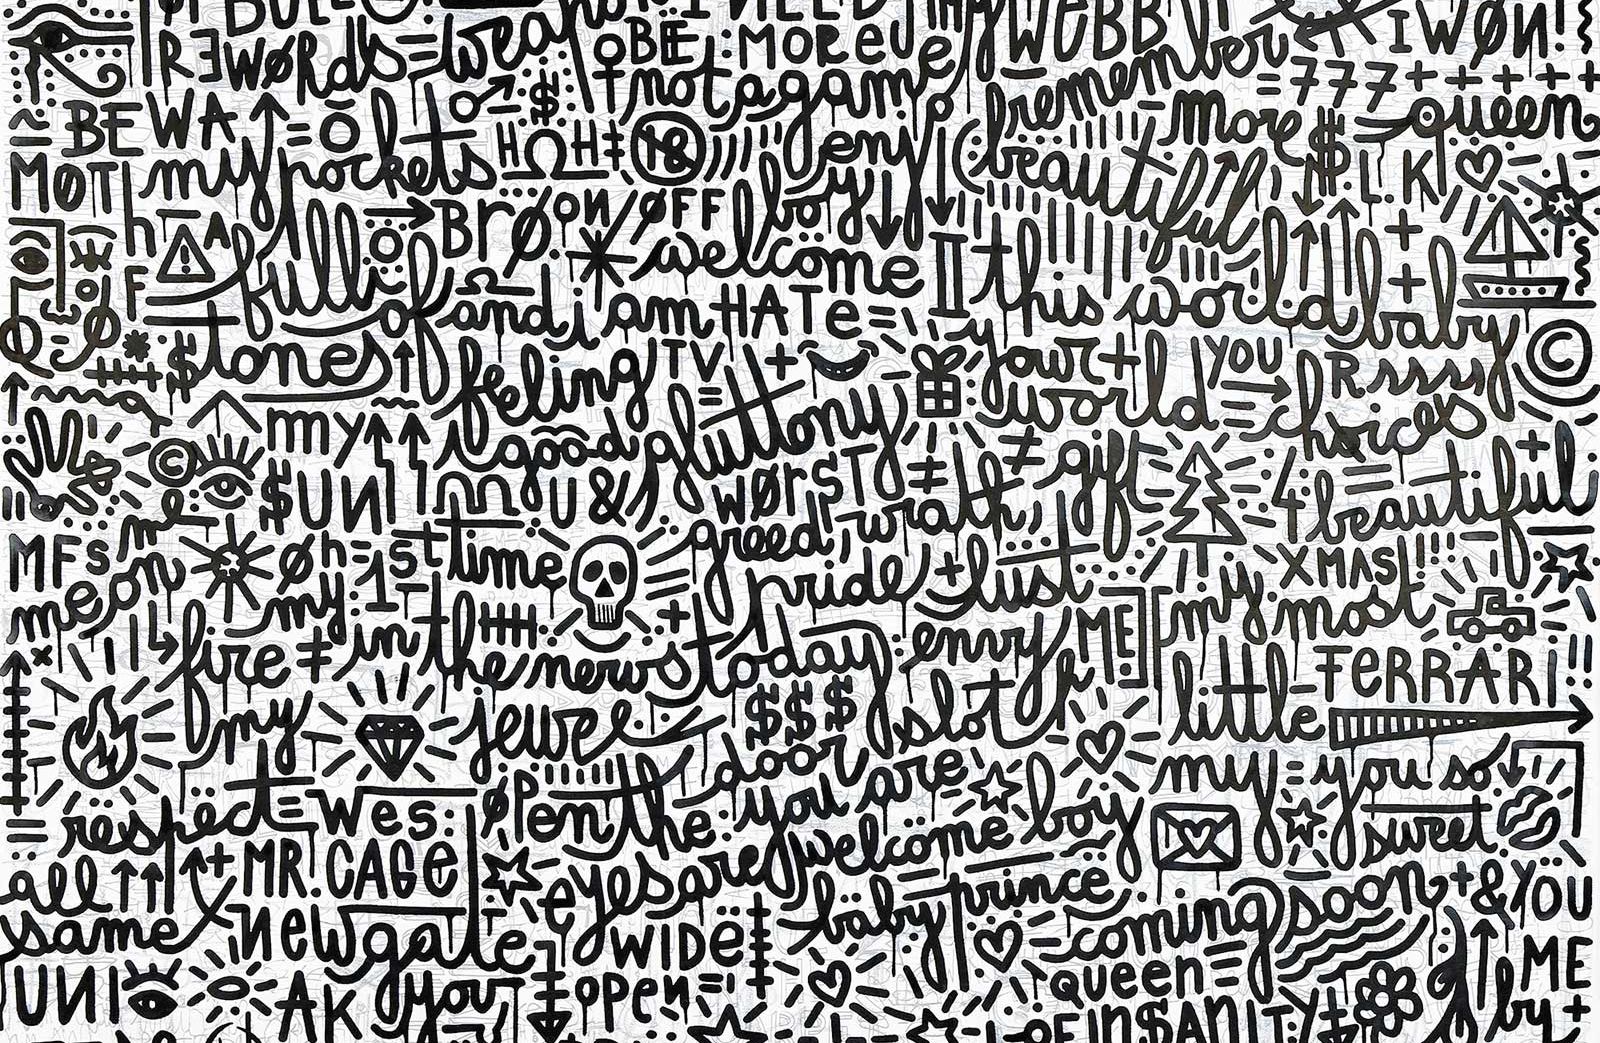 BE MORE
WEBB
I WØN!
not a game
remember
= 777 + + + + +
BEWA
= Ō
more $
queen
MØTh
my pockets
18
envy
(beautiful
L.K
A
full
BrØ
ON/ØFF
boy
F
of
welcome
II
this world
baby
$tones
and i am HATe =
feeling
TV
+
your +
YOU
©
my
good
gluttony
world =
choices
©
$UN
U &
WØrST
≠
gift
4
beautiful
MFs
me
Øh = 1st time
greed,
wrath,
XMAS!!!
me on
my 1st
pride +
lust
my most
fire
in
the news
today
envy
ME
little
FeRRARI!!
my
jewel
$$$
slot
door
respect =
wes
ØPen the
you are
my =
you so
all
+ MR. CAGe
welcome boy
sweet
same
Newgate
eyes are
WIDe
baby prince
coming soon
+ & YOU
UNI
AK
your
OPeN =
QUeeN =
ME
OF IN$ANITY
by +